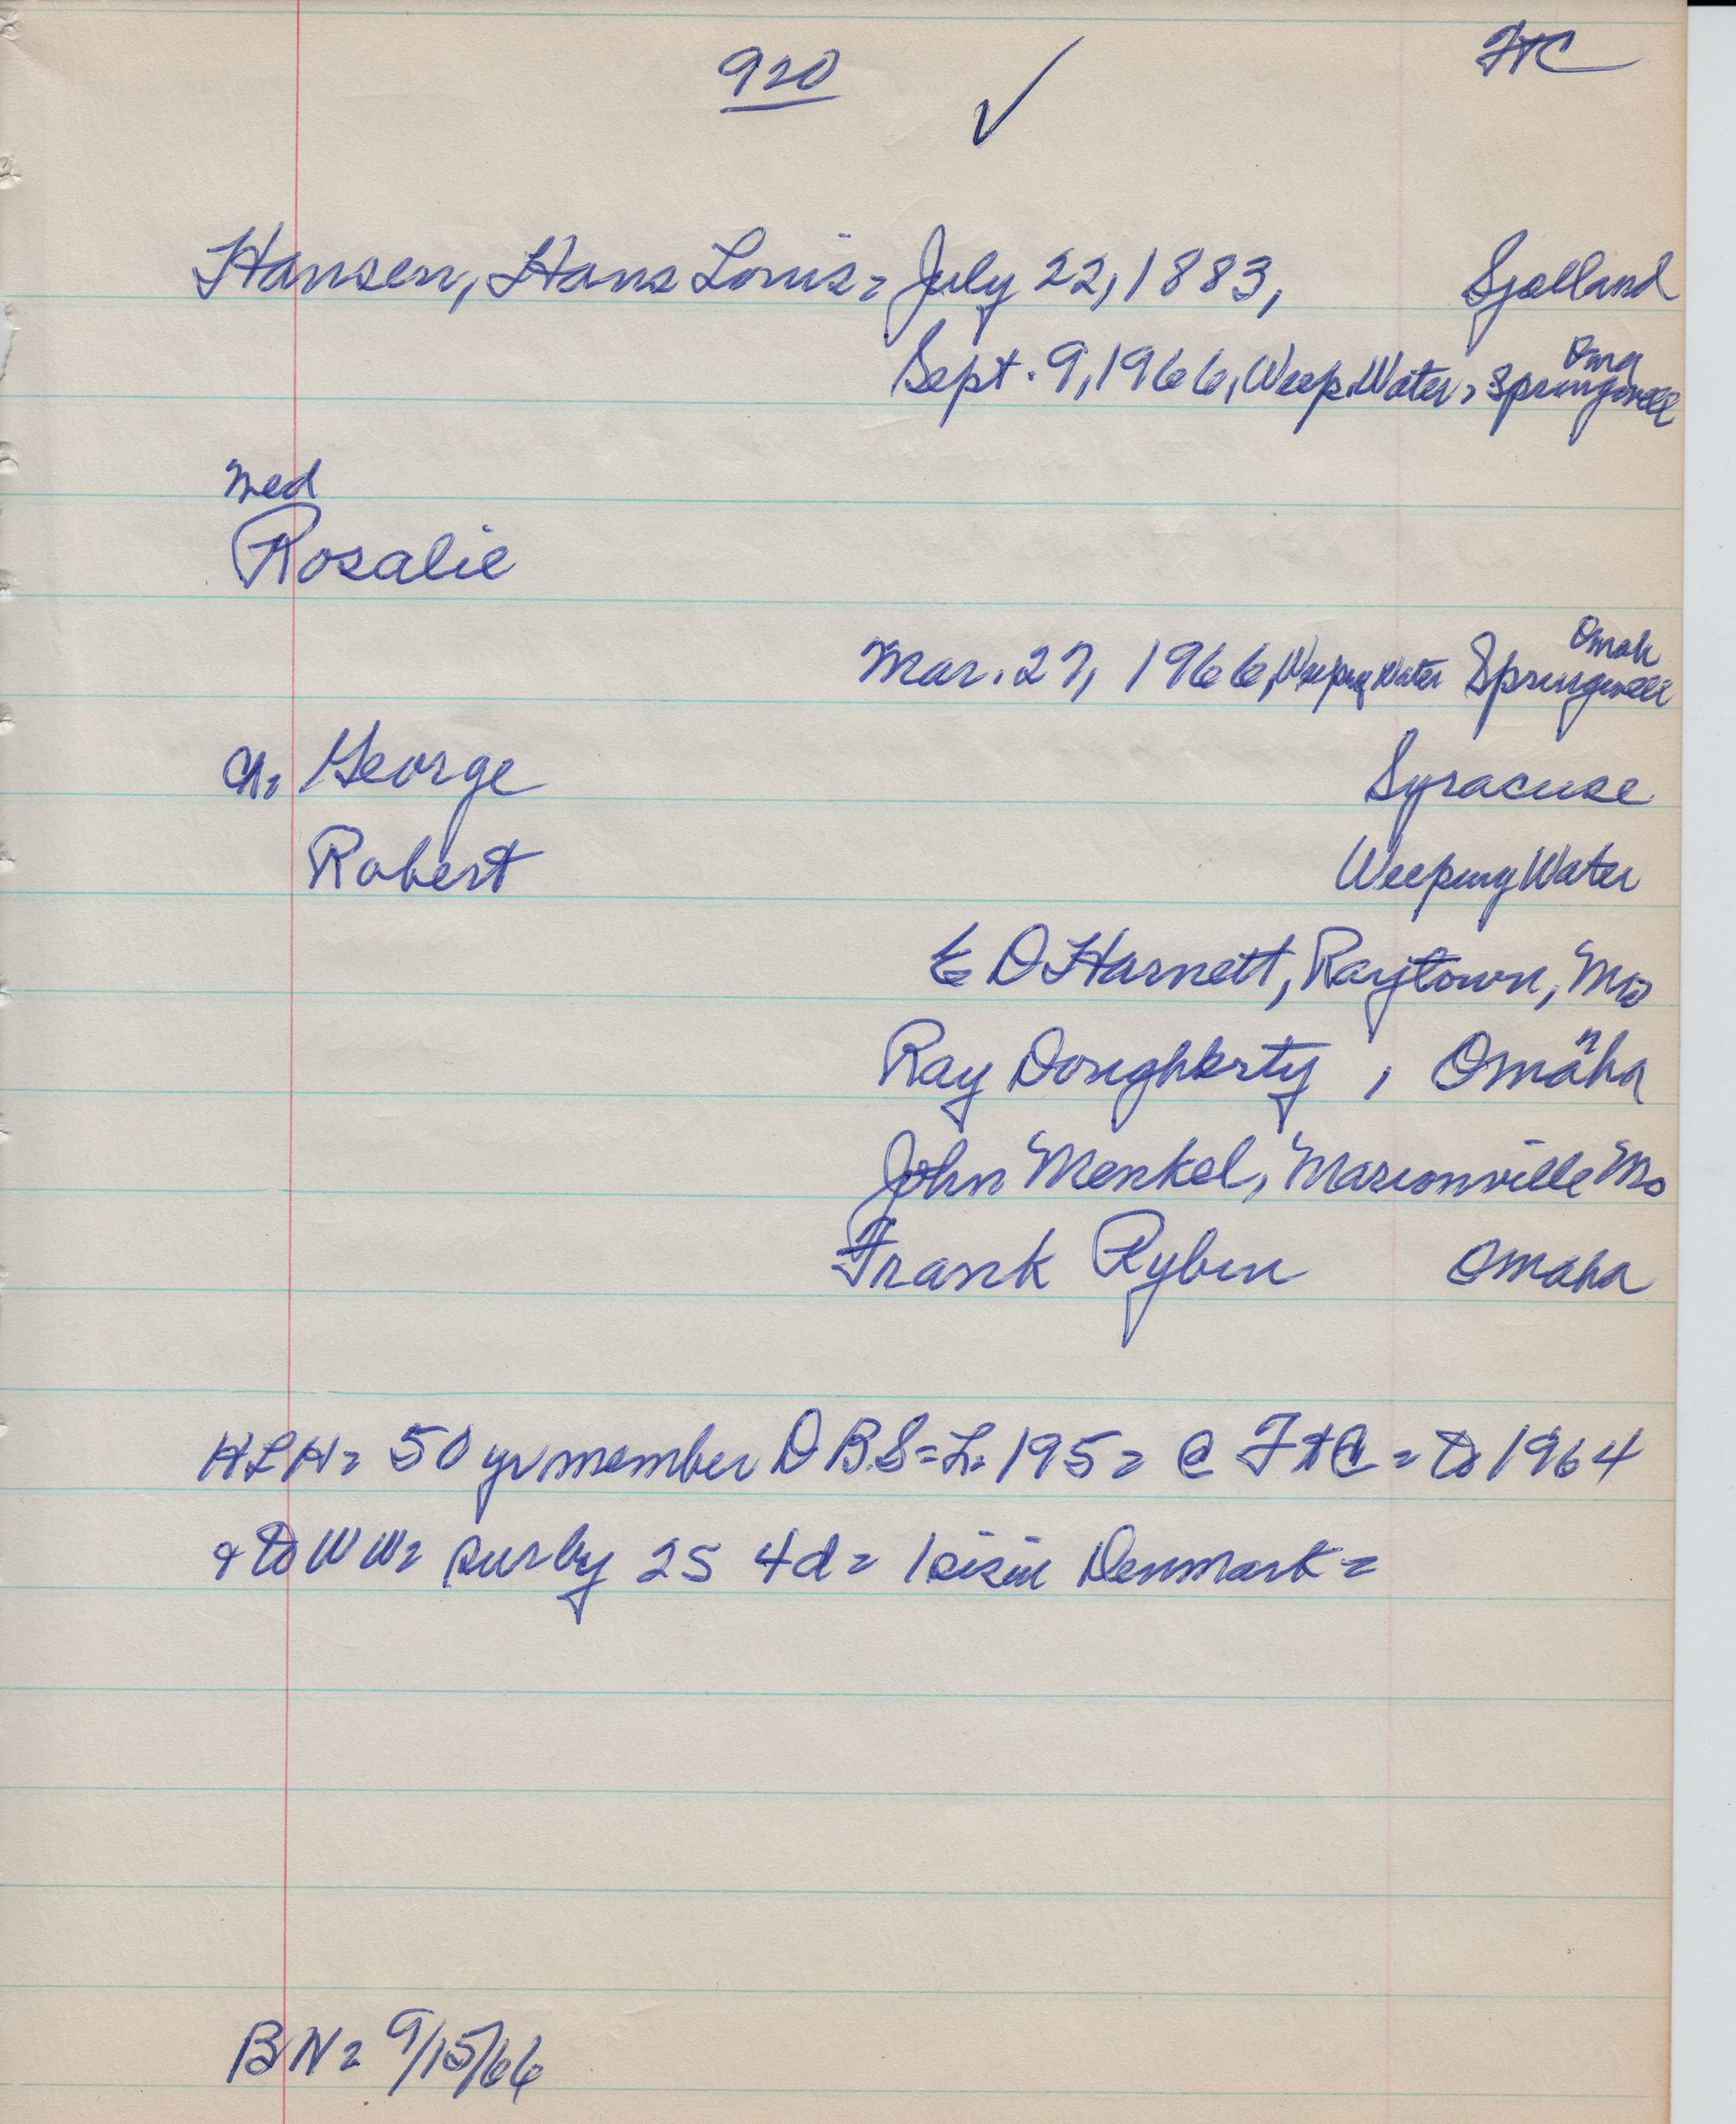 920 ✓ FTC
Hansen, Hans Louis = July 22, 1883, Sjælland
Oma
Sept. 9, 1966, Weep. Water, Springwell
med
Rosalie
Omah
Mar. 27, 1966, Weeping Water Springwell
ch. George Syracuse
Robert Weeping Water
E D Harnett, Raytown, Mo
Ray Dougherty, Omaha
John Menkel, Marionville Mo
Frank Rybin Omaha
HLH = 50 yr member D B.S = L. 195 = @ FTC = to 1964
& to WW = sur by 2S 4d = 1 sis in Denmark =
BN = 9/15/66